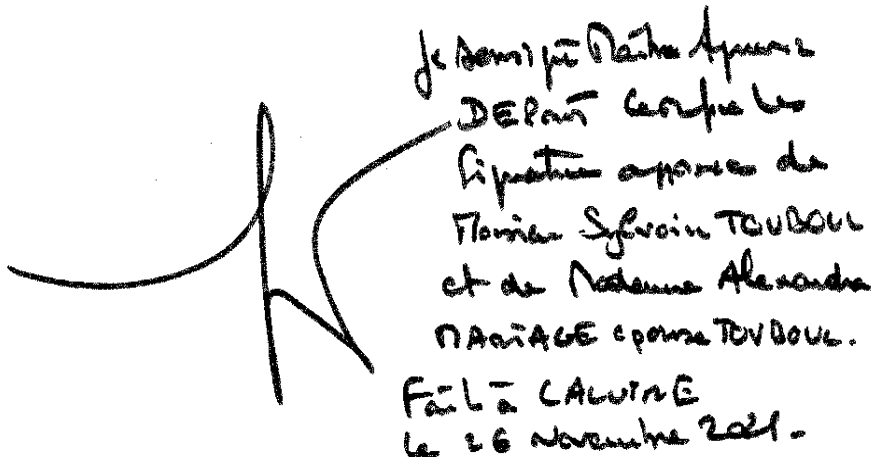 Je soussigné Maître
DEPOUT certifie les
signatures apposées de
Monsieur Sylvain TOUBOUL
et de Madame Alexandra
MARIAGE épouse TOUBOUL.
Fait à CALUIRE
le 26 novembre 2021.